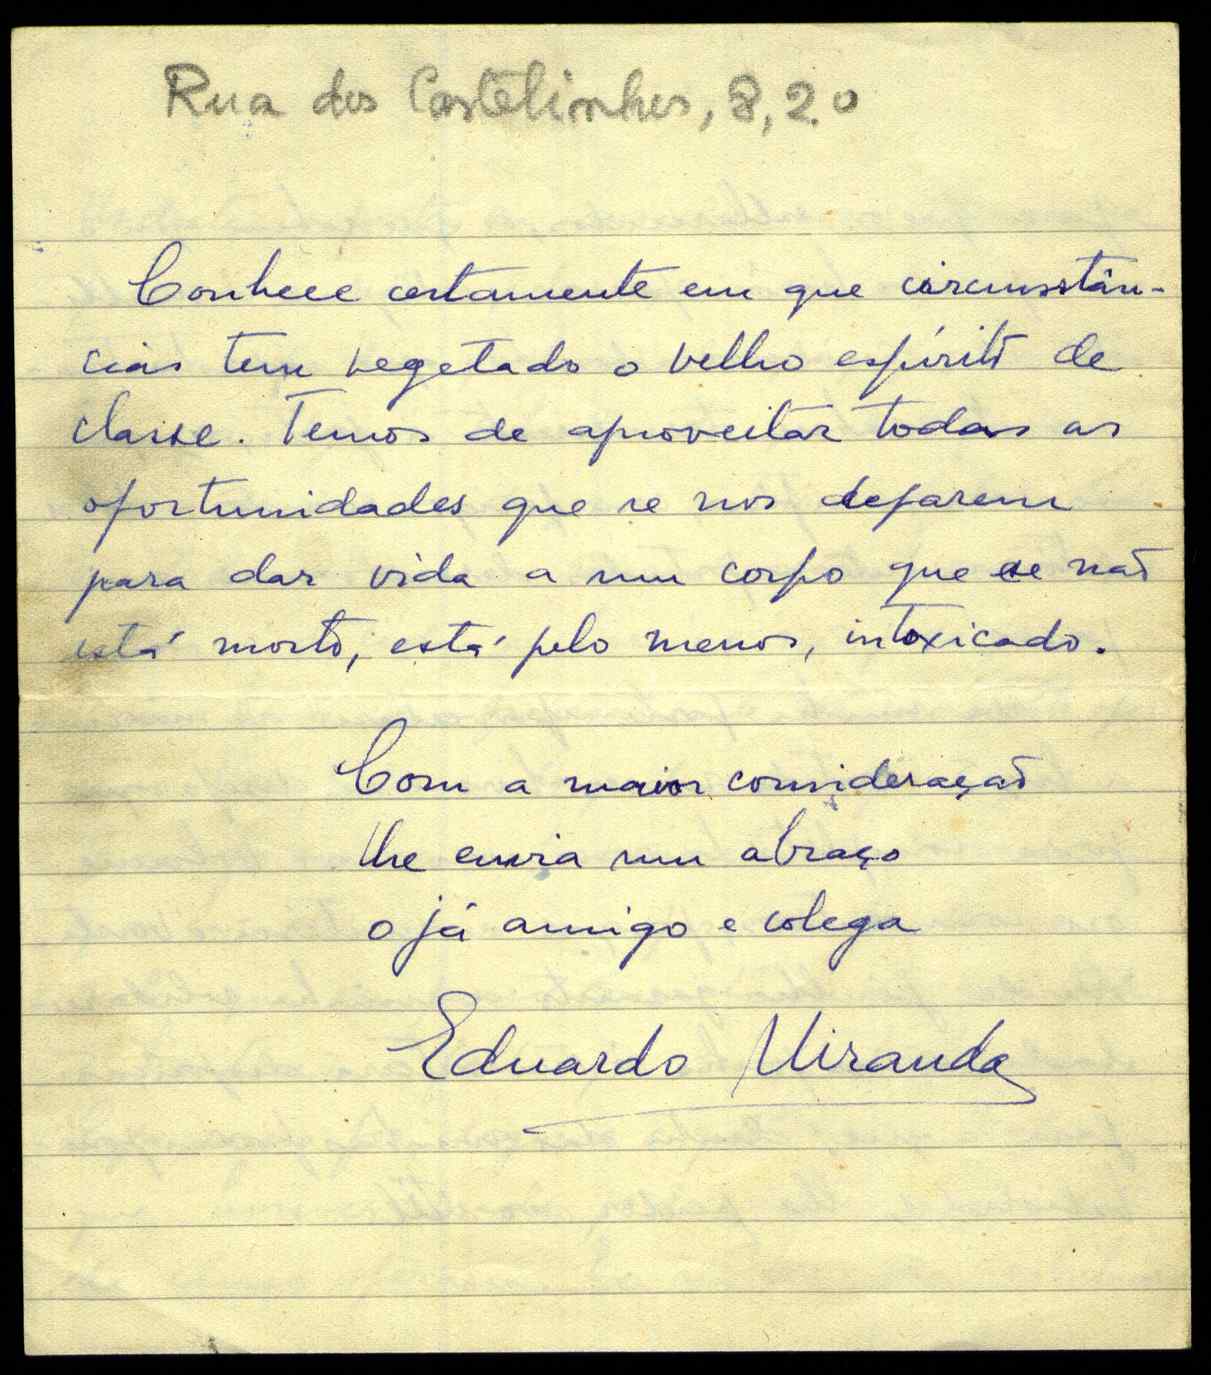 Rua dos Castelinhos, 8, 2.º
Conhece certamente em que circunstân-
cias tem vegetado o velho espírito de
classe. Temos de aproveitar todas as
oportunidades que se nos deparem
para dar vida a um corpo que se não
está morto, está pelo menos, intoxicado.
Com a maior consideração
lhe envia um abraço
o já amigo e colega
Eduardo Miranda